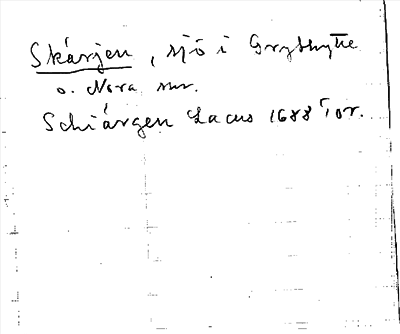 Skárjen, sjö i Grythytte
o. Nora snr.
Schiárgen Lacus 1688 Tor.